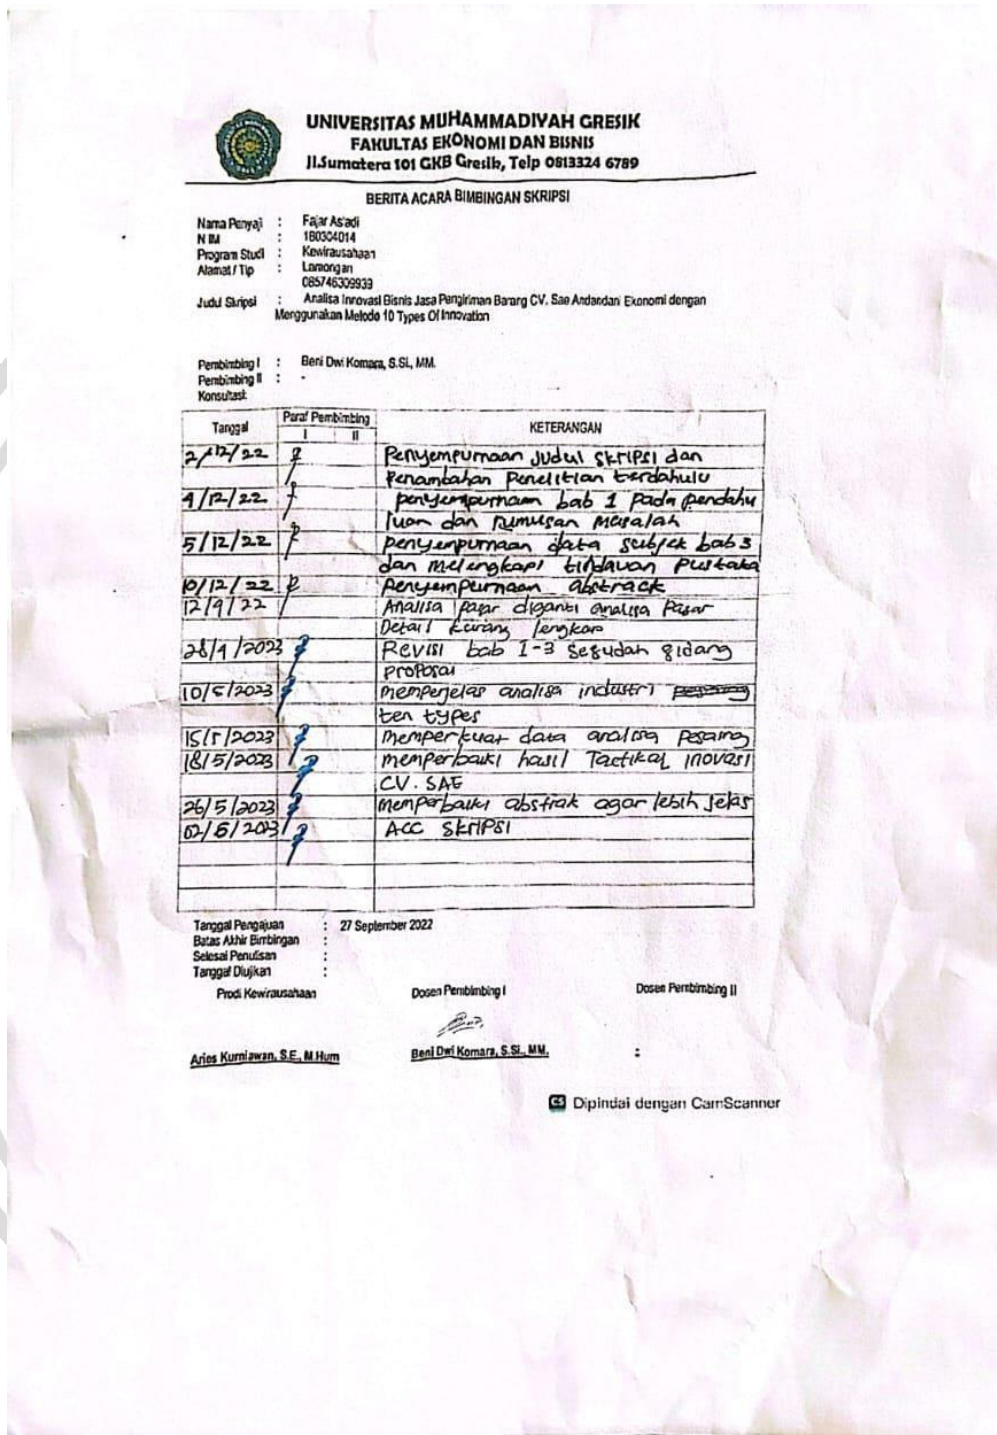 UNIVERSITAS MUHAMMADIYAH GRESIK
FAKULTAS EKONOMI DAN BISNIS
Jl.Sumatera 101 GKB Gresik, Telp 0813324 6789
BERITA ACARA BIMBINGAN SKRIPSI
Nama Penyaji : Fajar As'adi
N IM : 180304014
Program Studi : Kewirausahaan
Alamat / Tlp : Lamongan
085746309933
Judul Skripsi : Analisa Innovasi Bisnis Jasa Pengiriman Barang CV. Sae Andandari Ekonomi dengan
Menggunakan Metode 10 Types Of Innovation
Pembimbing I : Beni Dwi Komara, S.Si., MM.
Pembimbing II : -
Konsultasi:
Tanggal Paraf Pembimbing KETERANGAN
I II
2/12/22 Penyempurnaan Judul skripsi dan
Penambahan Penelitian terdahulu
4/12/22 penyempurnaan bab 1 pada pendahu
luan dan rumusan masalah
5/12/22 penyempurnaan data subjek bab 3
dan melengkapi tindauan Pustaka
10/12/22 penyempurnaan abstrack
12/9/22 Analisa pasar diganti analisa Pasar
Detail kurang lengkap
28/1/2023 Revisi bab 1-3 sesudah sidang
proposal
10/5/2023 memperjelas analisa industri
ten types
15/5/2023 memperkuat data analisa pesaing
18/5/2023 memperbaiki hasil Tactikal inovasi
CV. SAE
26/5/2023 memperbaiki abstrak agar lebih jelas
02/6/2023 ACC SKRIPSI
Tanggal Pengajuan : 27 September 2022
Batas Akhir Bimbingan :
Selesai Penulisan :
Tanggal Diujikan :
Prodi Kewirausahaan Dosen Pembimbing I Dosen Pembimbing II
Aries Kurniawan, S.E., M.Hum Beni Dwi Komara, S.Si., MM. :
CS Dipindai dengan CamScanner